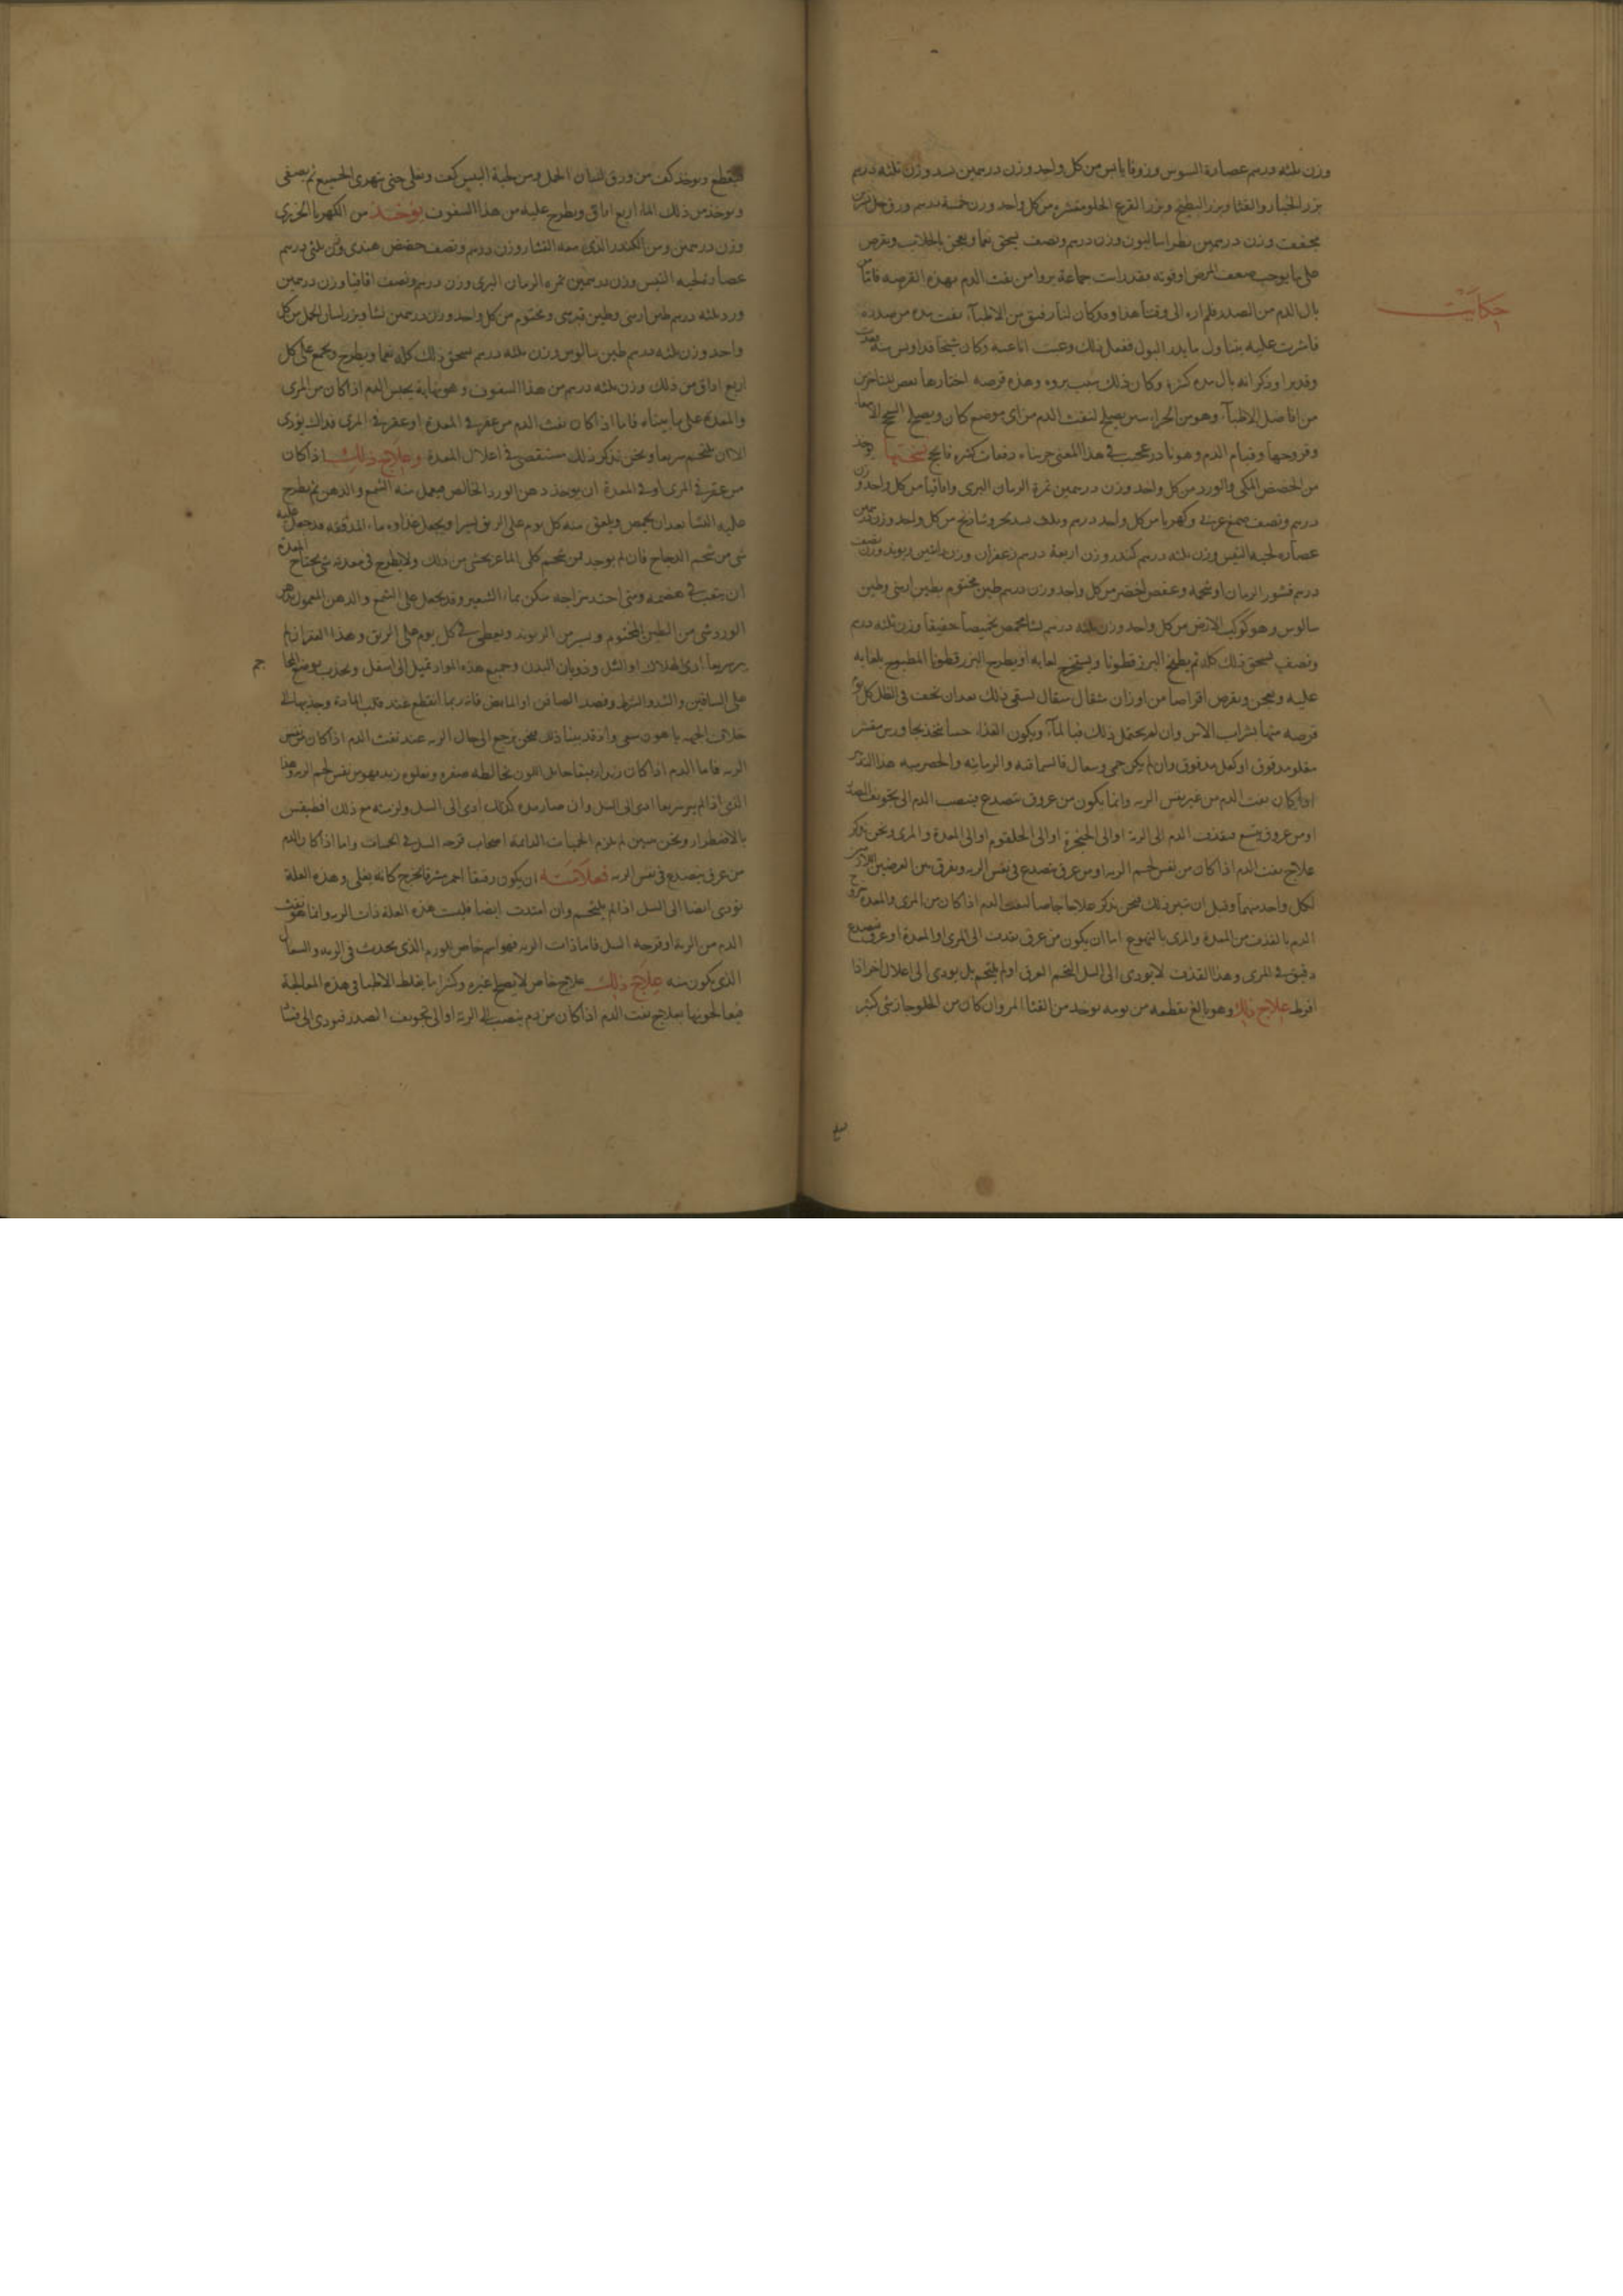 وزن ثلثه درهم عصارة السوس وزوفا يابس من كل واحد وزن درهمين بسد وزن ثلثه درهم
بزر الخيار والقثا وبزر البطيخ وبزر القرع الحلو مقشره من كل واحد وزن خمسة درهم ورق
مجففت وزن درهمين بطراساليون وزن درهم ونصف يسحق نعما ويعجن بالجلاب ويقرص
على ما يوجب ضعف المرض او قوته وقد رايت جماعة بروا من نفث الدم بهذه القرصه فاما
بال الدم من الصدر فلم اره الى وقتنا هذا وقد كان لنا رفيق من الاطباء نفث مده من صدره
حكايت
فاشرت عليه بتناول ما يدر البول ففعل ذلك وغبت انا عنه وكان شيخا قد اويس منه
وقد برا وذكر انه بال مده كثيره وكان ذلك سبب بروه وهذه قرصه اختارها بعض المتاخرين
من افاضل الاطباء وهو من الحرا يصلح لنفث الدم من اى موضع كان ويصلح السحج الامعا
وقروحها وقيام الدم وهو نادر عجيب فى هذا المعنى جربناه دفعات كثيره فانجح نسختها يوخذ
من الحضض المكى والورد من كل واحد وزن درهمين ثمرة الرمان البرى واقاقيا من كل واحد وزن
درهم ونصف صمغ عربى وكهربا من كل واحد درهم وثلث بسد محرق وشادنج من كل واحد وزن درهمين
عصارة لحيه التيس وزن ثلثه درهم كندر وزن اربعة درهم زعفران وزن دانقين ريوند وزن نصف
درهم قشور الرمان او شحمه وعفص اخضر من كل واحد وزن درهم طين مختوم وطين ارمنى وطين
سالوس وهو كوكب الارض من كل واحد وزن ثلثه درهم نشا محمص تحميصا خفيفا وزن ثلثه درهم
ونصف يسحق ذلك كله ثم يطبخ البزر قطونا ويستخرج لعابه او يطرح البزر قطونا المطبوخ بلعابه
عليه ويعجن ويقرص اقراصا من اوزان مثقال مثقال يسقى ذلك بعد ان تجفف فى الظل كل يوم
قرصه منها بشراب الاس وان لم يحتمل ذلك فبالماء ويكون الغذاء حسا متخذ بجاورس مقشر
مقلو مدقوق او كعك مدقوق وان لم يكن حمى وسعال فالسماقيه والرمانيه والحصرميه هذا التدبير
اذا كان نفث الدم من غير نفس الريه وانما يكون من عروق تتصدع ينصب الدم الى تجويف الصدر
او من عروق يتسع فيقذف الدم الى الرية او الى الحنجرة او الى الحلقوم او الى المعدة والمرى ونحن نذكر
علاج نفث الدم اذا كان من نفس لحم الريه او من عرق تصدع فى نفس الريه ونفرق بين العرضين
لكل واحد منهما وقبل ان نبين ذلك فنحن نذكر علاجا خاصا لنفث الدم اذا كان من المرى والمعدة
الدم بالقذف من المعدة والمرى بالتهوع اما ان يكون من عرق يقذف الى المرى او المعدة او عرق يتصدع
دقيق فى المرى وهذا القذف لا يودى الى السل التحم العرق او لم يلتحم بل يودى الى اعلال اخر اذا
افرط علاج ذلك وهو بالغ يقطعه من يومه يوخذ من القثا المر وان كان من الحلو جاز شى كثير
فيقطع ويوخذ كف من ورق لسان الحمل ومن لحية التيس كف ويغلى حتى يتهرى الجميع ثم يصفى
ويوخذ من ذلك الماء اربع اواق ويطرح عليه من هذا السفوف يوخذ من الكهربا
وزن درهمين ومن الكندر الذى معه القشار وزن درهم ونصف حضض هندى وزن ثلثى درهم
عصارة لحيه التيس وزن درهمين ثمره الرمان البرى وزن درهم ونصف اقاقيا وزن درهمين
ورد ثلثه درهم طين ارمنى وطين قبرسى ومختوم من كل واحد وزن درهمين نشا وبزر لسان الحمل من كل
واحد وزن ثلثه درهم طين سالوس وزن ثلثه درهم يسحق ذلك كله نعما ويطرح ويجمع على كل
اربع اواق من ذلك وزن ثلثه درهم من هذا السفوف وهو نهايه يحبس الدم اذا كان من المرى
والمعدة على ما بيناه فاما اذا كان نفث الدم من عقر فى المعدة او عقر فى المرى فذاك يودى
الا ان يلتحم سريعا ونحن نذكر ذلك مستقصى فى اعلال المعدة وعلاج ذلك اذا كان
من عقر فى المرى او فى المعدة ان يوخذ دهن الورد الخالص فيعمل منه الشمع والدهن ثم يطرح
عليه النشا بعد ان يحمص ويلعق منه كل يوم على الريق يسيرا ويجعل غذاوه ماء المدققه قد جعل عليه
شى من شحم الدجاج فان لم يوجد فمن شحم كلى الماعز يحتسى من ذلك ولا يطرح فى معدته شى يحتاج المعدة
ان يتعب فى هضمه ومتى احتد مزاجه سكن بماء الشعير وقد يجعل على الشمع والدهن المعمول بدهن
الورد شى من الطين المختوم ويسير من الريوند ويعطى فى كل يوم على الريق وهذا العقر ان لم
يبر سريعا ادى الهلاك او السل وذوبان البدن وجميع هذه المواد تميل الى اسفل وتجذب بوضع المحا
جم
على الساقين والشد والشرط وفصد الصافن او المابض فانه ربما انقطع عند قلب المادة وجذبها الى
خلاف الجهه باهون سعى واذ قد بينا ذلك فنحن نرجع الى حال الريه عند نفث الدم اذا كان من نفس
الريه فاما الدم اذا كان زبدا رقيقا حايل اللون تخالطه صفره ويعلوه زبد فهو من نفس لحم الريه وهذا
الذى اذا لم يبر سريعا ادى الى السل وان صار مده كذلك ادى الى السل ولزمته مع ذلك اقطيقس
بالاضطرار ونحن مبين لم يلزم الحميات الدائمة اصحاب قرحه السل فى الحميات واما اذا كان الدم
من عرق يتصدع فى نفس الريه فعلامته ان يكون رقيقا احمر مشرقا يخرج كانه يغلى وهذه العلة
تودى ايضا الى السل اذا لم يلتحم وان امتدت ايضا فليست هذه العلة ذات الريه وانما هو نفث
الدم من الرية او قرحه السل فاما ذات الريه فهو اسم خاص للورم الذى يحدث فى الريه والسعال
الذى يكون منه علاج ذلك علاج خاص لا يصلح غيره وكثيرا ما يغلط الاطبا فى هذه المعالجة
فيعالجونها بعلاج نفث الدم اذا كان من دم ينصب الى الرية او الى تجويف الصدر فيودى الى